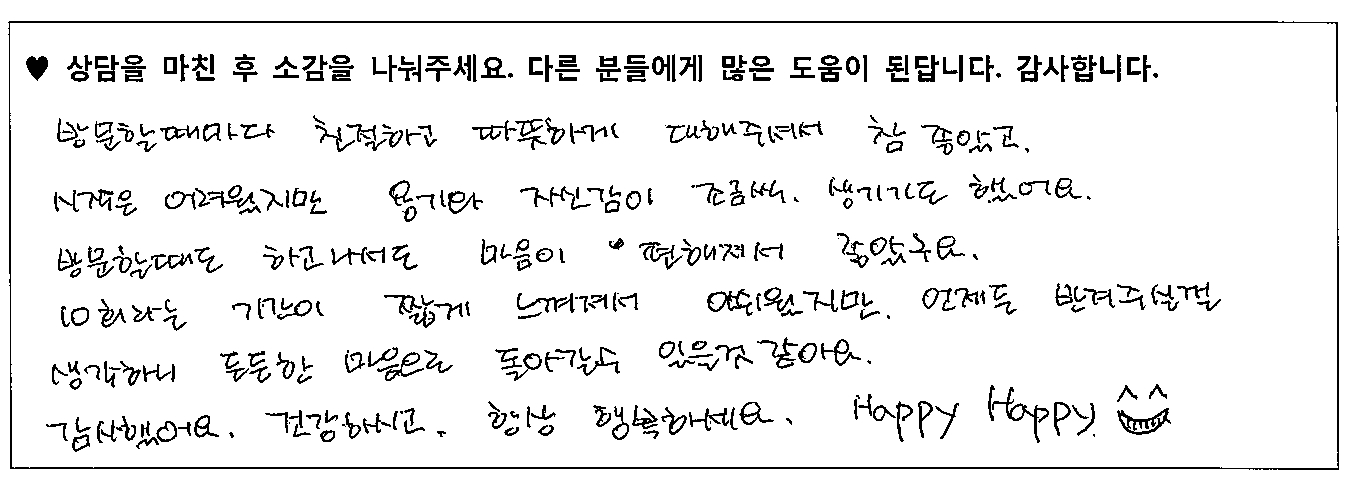 ♥ 상담을 마친 후 소감을 나눠주세요. 다른 분들에게 많은 도움이 된답니다. 감사합니다.
방문할때마다 친절하고 따뜻하게 대해주셔서 참 좋았고,
시작은 어려웠지만 용기와 자신감이 조금씩. 생기기도 했어요.
방문할때도 하고나서도 마음이 편해져서 좋았구요.
10회라는 기간이 짧게 느껴져서 아쉬웠지만. 언제든 반겨주실걸
생각하니 든든한 마음으로 돌아갈수 있을것 같아요.
감사했어요. 건강하시고. 항상 행복하세요. Happy Happy.